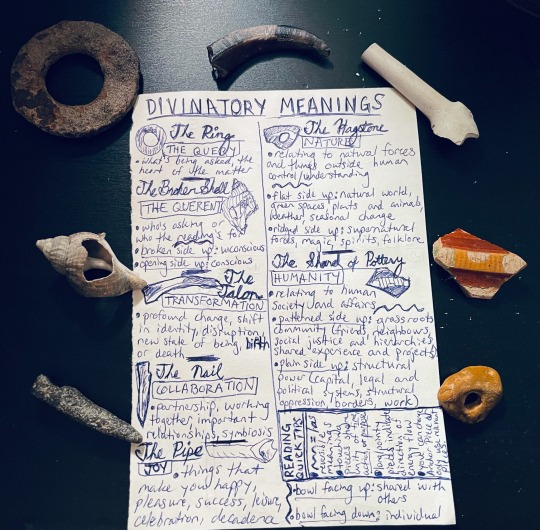 DIVINATORY MEANINGS
The Ring
THE QUERY
• what's being asked, the
heart of the matter
The Broken Shell
THE QUERENT
• who's asking or
who the reading's for
• broken side up: unconscious
opening side up: conscious
The
Talon
TRANSFORMATION
• profound change, shift
in identity, disruption,
new state of being, birth
or death
The Nail
COLLABORATION
• partnership, working
together, important
relationships, symbiosis
The Pipe
JOY • things that
make you happy,
pleasure, success, leisure,
celebration, decadence
The Hagstone
NATURE
• relating to natural forces
and things outside human
control/understanding
• flat side up: natural world,
green spaces, plants and animals,
weather, seasonal change
• ridged side up: supernatural
forces, magic, spirits, folklore
The Shard of Pottery
HUMANITY
• relating to human
society and affairs
• patterned side up: grassroots
community (friends, neighbours,
social justice and hierarchies,
shared experience and projects)
• plain side up: structural
power (capital, legal and
political systems, structural
oppression, borders, work)
READING
QUICK TIPS
• bowl facing up: shared with
others
• bowl facing down: individual